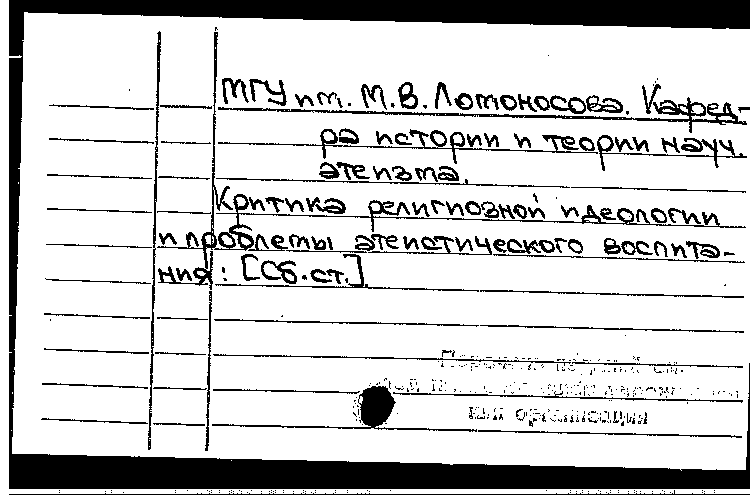 МГУ им. М.В. Ломоносова. Кафед-
ра истории и теории науч.
атеизма.
Критика религиозной идеологии
и проблемы атеистического воспита-
ния: [Сб.ст.]
или организация